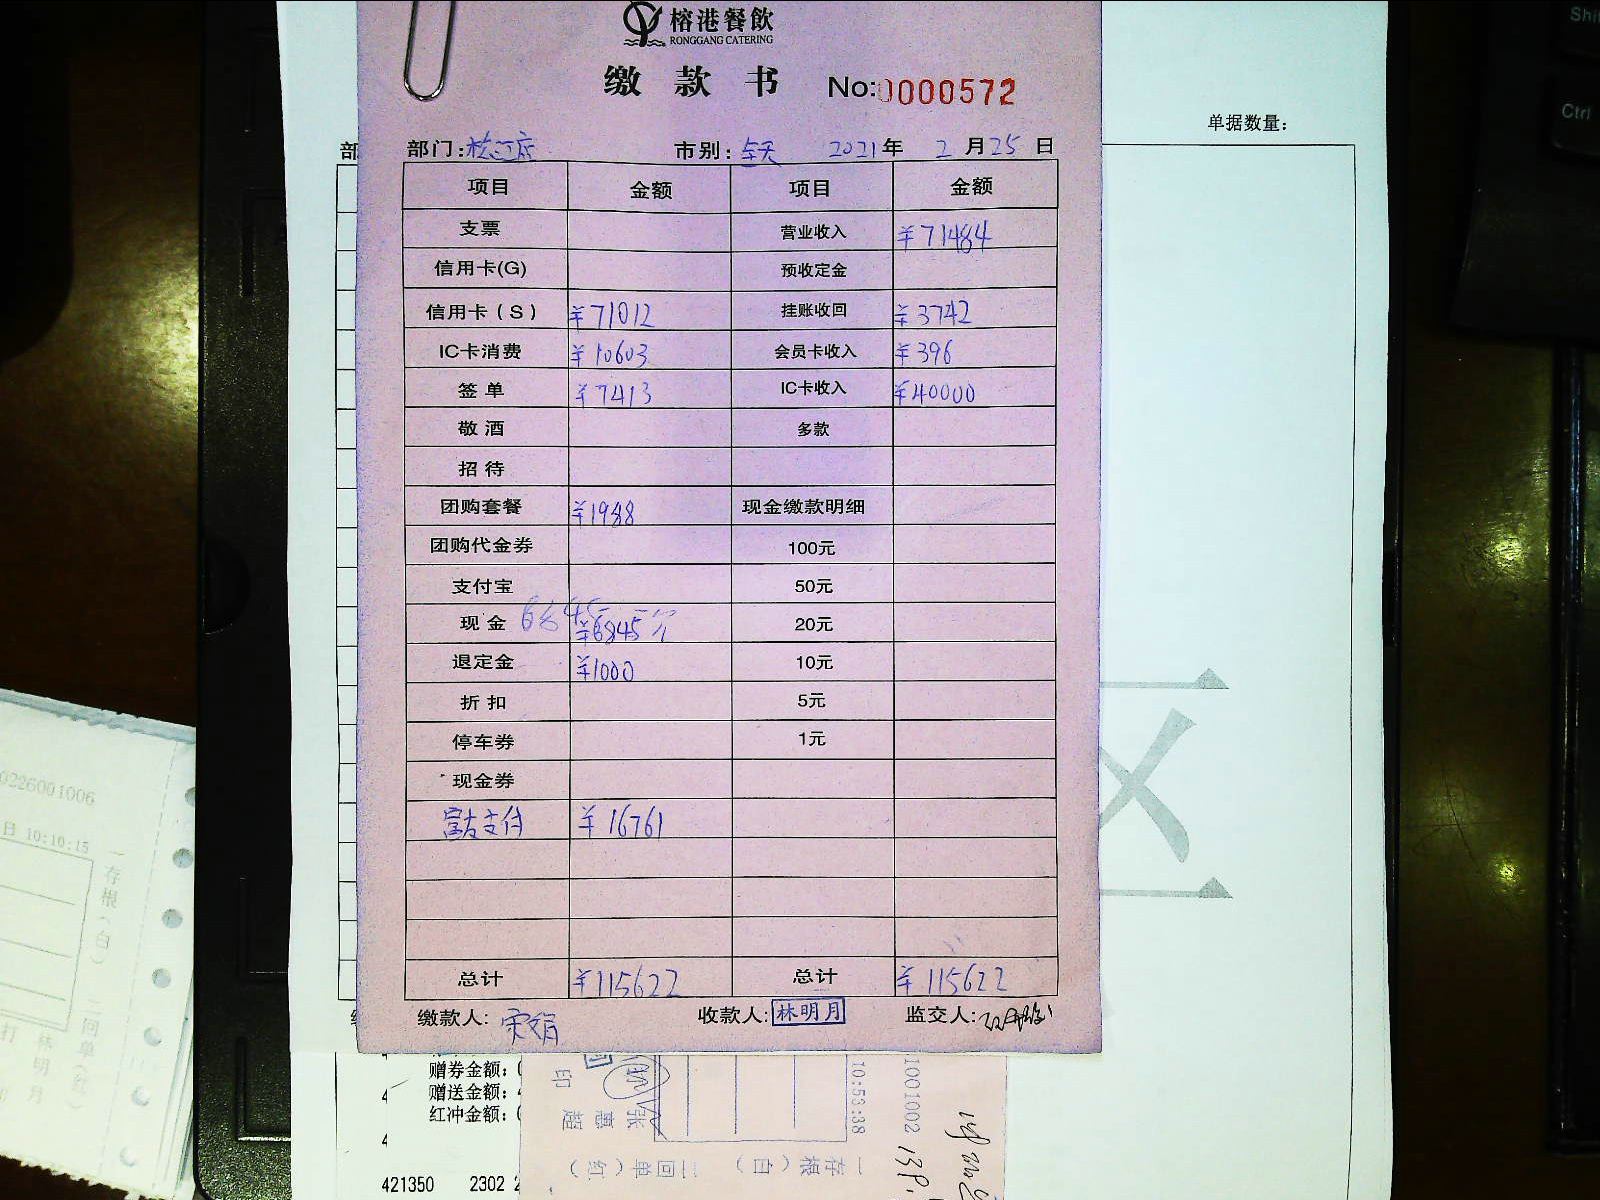 榕港餐飲
RONGGANG CATERING
缴款书 No:0000572
单据数量:
部门:松江店 市别:全天 2021年2月25日
项目 金额 项目 金额
支票 营业收入 ¥71484
信用卡(G) 预收定金
信用卡(S) ¥71012 挂账收回 ¥3742
IC卡消费 ¥10603 会员卡收入 ¥396
签单 ¥7413 IC卡收入 ¥40000
敬酒 多款
招待
团购套餐 ¥1988 现金缴款明细
团购代金券 100元
支付宝 50元
现金 6845 ¥6845 20元
退定金 ¥1000 10元
折扣 5元
停车券 1元
现金券
富友支付 ¥16761
总计 ¥115622 总计 ¥115622
缴款人: 收款人:林明月 监交人:
赠券金额:
赠送金额:
红冲金额:
421350 2302 2
0226001006
日 10:10:15
一存根(白)
二回单(红)
林明月
打
10:53:38
1001002
印
张惠超
一存根(白) 二回单(红)
Ctrl
Shi